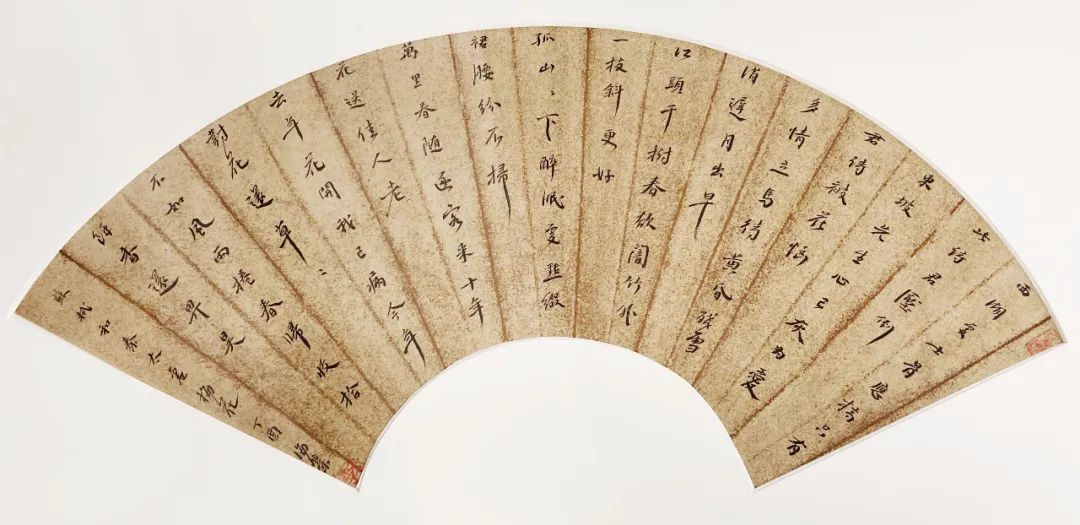 西湖處士骨應槁只有
此詩君壓倒
東坡先生心已灰為愛
君詩被花惱
多情立馬待黃昏殘雪
消遲月出早
江頭千樹春欲闇竹外
一枝斜更好
孤山〻下醉眠處點綴
裙腰紛不掃
萬里春隨逐客來十年
花送佳人老
去年花開我已病今年
對花還草〻
不如風雨捲春歸收拾
餘香還畀昊
蘇軾和秦太虛梅花 丁酉